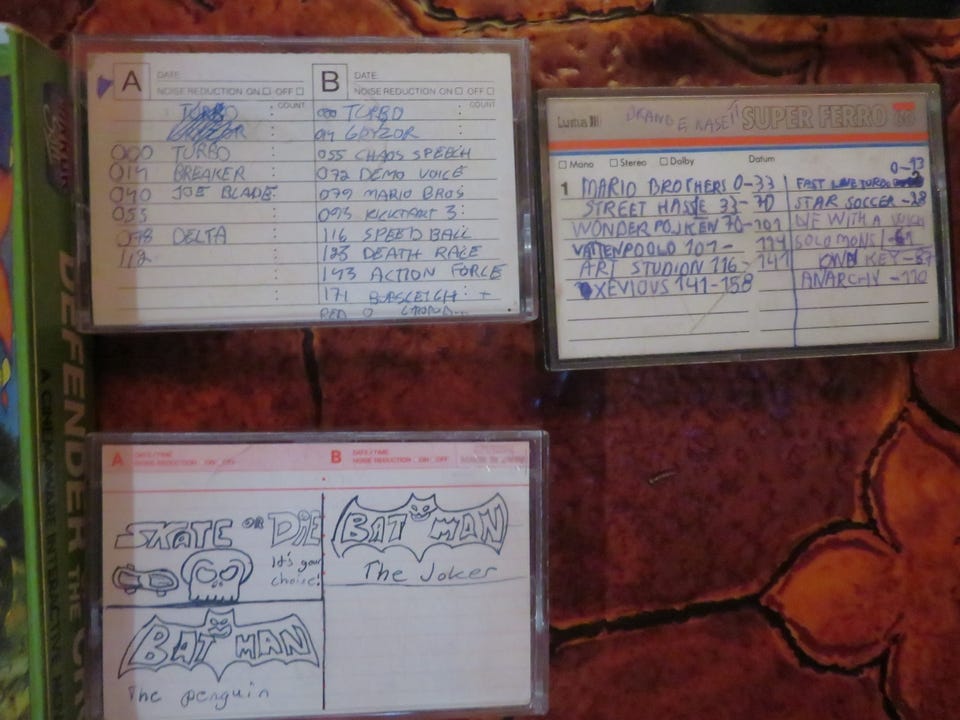 A
DATE
NOISE REDUCTION ON □ OFF □
COUNT
TURBO
000 TURBO
019 BREAKER
040 JOE BLADE
055
098 DELTA
112
B
DATE
NOISE REDUCTION ON □ OFF □
COUNT
000 TURBO
019 GRYZOR
055 CHAOS SPEECH
072 DEMO VOICE
079 MARIO BROS
095 KICKSTART 3
116 SPEED BALL
123 DEATH RACE
143 ACTION FORCE
171
RED
SUPER FERRO
□ Mono □ Stereo □ Dolby Datum
1 MARIO BROTHERS 0-33
STREET HASSE 33-70
WONDER POJKEN 70-101
VATTENPOOLO 101-
ART STUDION 116-141
XEVIOUS 141-158
0-13
FAST LANE TURBO
STAR SOCCER -28
WE WITH A
SOLOMONS
KEY
ANARCHY -110
A DATE/TIME
NOISE REDUCTION ON OFF
B DATE/TIME
NOISE REDUCTION ON OFF
SKATE OR DIE
It's your
choice!
BATMAN
The penguin
BATMAN
The Joker
DEFENDER OF THE CROWN
A CINEMAWARE INTERACTIVE